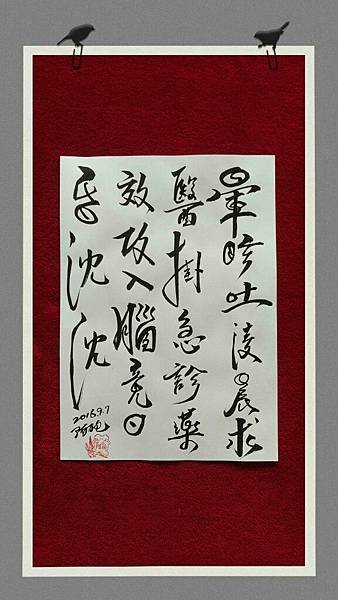 暈眩吐凌晨求
醫掛急診藥
效攻入腦竟日
昏沈沈
2016.9.7